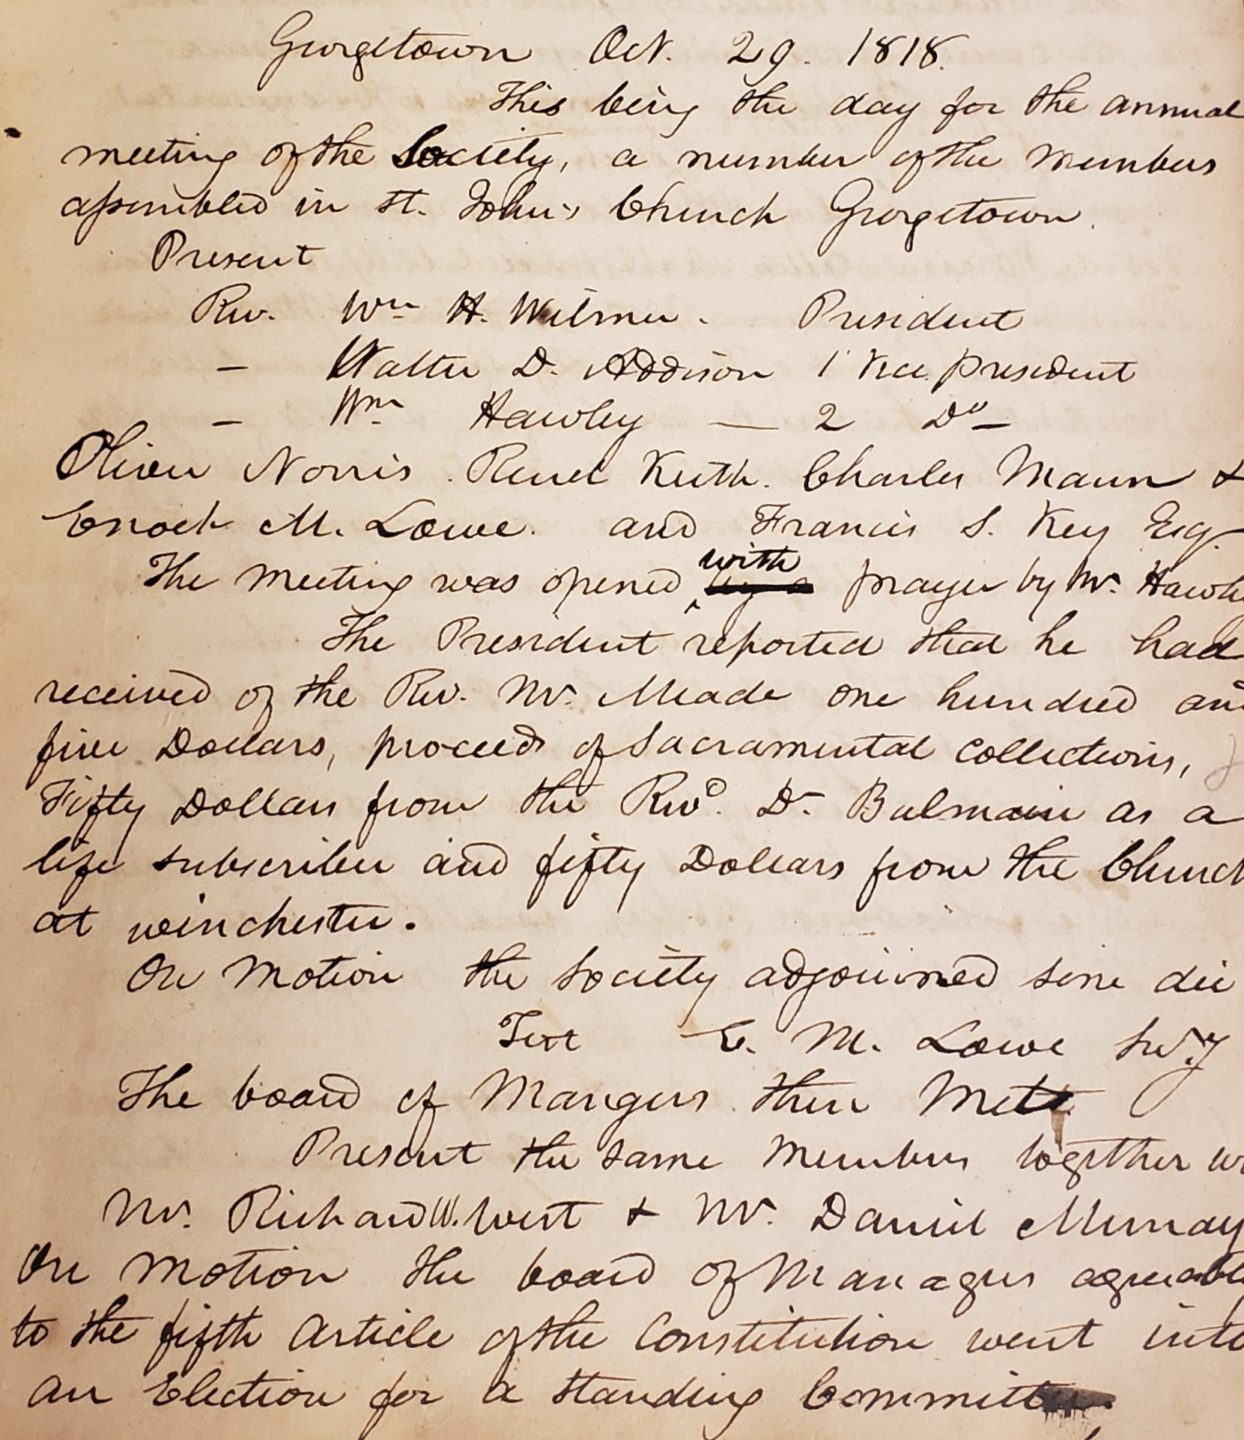 Georgetown Oct. 29. 1818.
This being the day for the annual
meeting of the Society, a number of the members
assembled in St. John's Church Georgetown.
Present
Rev. Wm H. Wilmer. President
— Walter D. Addison 1 Vice president
— Wm Hawley — 2 Do —
Oliver Norris. Reuel Keith. Charles Mann &
Enoch M. Lowe. and Francis S. Key Esq.
The meeting was opened with by a prayer by Mr. Hawley
The President reported that he had
received of the Rev. Mr. Meade one hundred and
five Dollars, proceeds of Sacramental collections,
Fifty Dollars from the Revd. Dr Balmain as a
life subscriber and fifty Dollars from the Church
at winchester.
On motion the Society adjourned sine die
Test E. M. Lowe Secy
The board of Mangers then Met
Present the same Members together w
Mr. Richard W. West & Mr. Daniel Murray
On motion the board of Managers agreeably
to the fifth Article of the Constitution went into
an Election for a standing Committee.